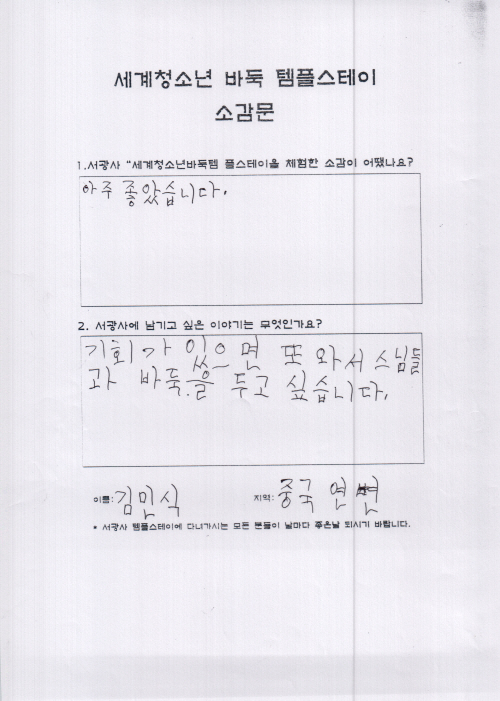 세계청소년 바둑 템플스테이
소감문
1.서광사 "세계청소년바둑템 플스테이을 체험한 소감이 어땠나요?
아주 좋았습니다.
2. 서광사에 남기고 싶은 이야기는 무엇인가요?
기회가 있으면 또 와서 스님들
과 바둑을 두고 싶습니다.
이름: 김민식 지역: 중국 연변
* 서광사 템플스테이에 다녀가시는 모든 분들이 날마다 좋은날 되시기 바랍니다.